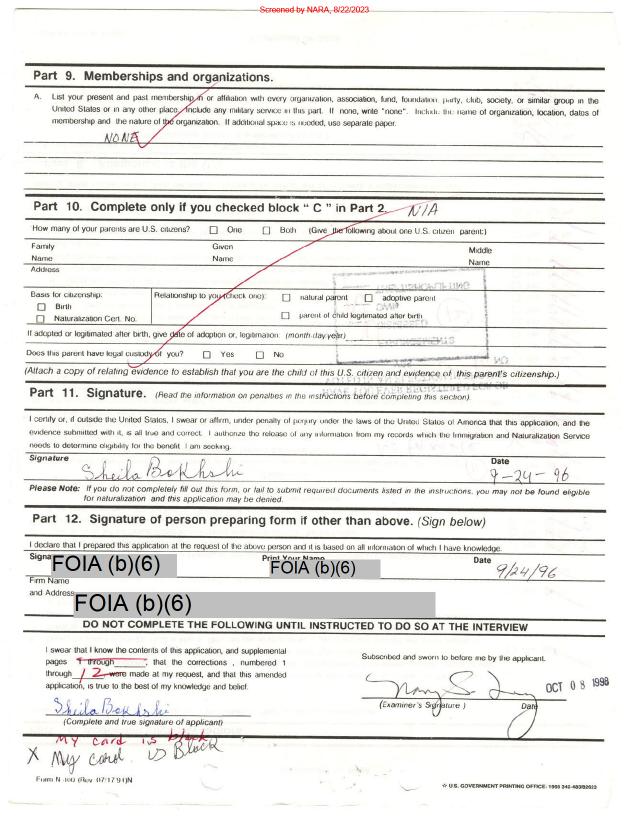 Screened by NARA, 8/22/2023
Part 9. Memberships and organizations.
A. List your present and past membership in or affiliation with every organization, association, fund, foundation, party, club, society, or similar group in the
United States or in any other place. Include any military service in this part. If none, write "none". Include the name of organization, location, dates of
membership and the nature of the organization. If additional space is needed, use separate paper.
NONE
Part 10. Complete only if you checked block " C " in Part 2. N/A
How many of your parents are U.S. citizens? One Both (Give the following about one U.S. citizen parent:)
Family Given Middle
Name Name Name
Address
Basis for citizenship: Relationship to you (check one): natural parent adoptive parent
Birth
Naturalization Cert. No. parent of child legitimated after birth
If adopted or legitimated after birth, give date of adoption or, legitimation: (month-day-year)
Does this parent have legal custody of you? Yes No
(Attach a copy of relating evidence to establish that you are the child of this U.S. citizen and evidence of this parent's citizenship.)
Part 11. Signature. (Read the information on penalties in the instructions before completing this section).
I certify or, if outside the United States, I swear or affirm, under penalty of perjury under the laws of the United States of America that this application, and the
evidence submitted with it, is all true and correct. I authorize the release of any information from my records which the Immigration and Naturalization Service
needs to determine eligibility for the benefit I am seeking.
Signature Date
Sheila Bokhshi 9-24-96
Please Note: If you do not completely fill out this form, or fail to submit required documents listed in the instructions, you may not be found eligible
for naturalization and this application may be denied.
Part 12. Signature of person preparing form if other than above. (Sign below)
I declare that I prepared this application at the request of the above person and it is based on all information of which I have knowledge.
Signa FOIA (b)(6) Print Your Name FOIA (b)(6) Date 9/24/96
Firm Name
and Address FOIA (b)(6)
DO NOT COMPLETE THE FOLLOWING UNTIL INSTRUCTED TO DO SO AT THE INTERVIEW
I swear that I know the contents of this application, and supplemental
pages 1 through ____, that the corrections , numbered 1
through 12 were made at my request, and that this amended
application, is true to the best of my knowledge and belief.
Sheila Bokhshi
(Complete and true signature of applicant)
Subscribed and sworn to before me by the applicant.
OCT 08 1998
(Examiner's Signature ) Date
My card is black
X My card is Block
Form N-400 (Rev. 07/17/91)N
☆ U.S. GOVERNMENT PRINTING OFFICE: